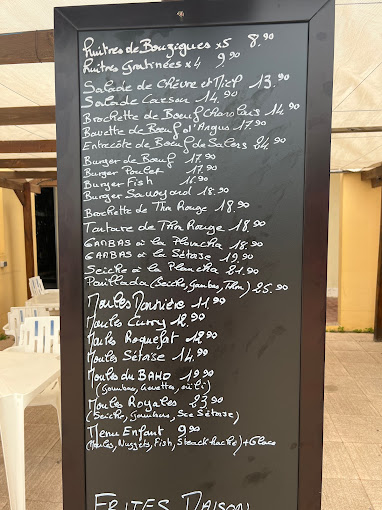 Huîtres de Bouzigues x5 8.90
Huîtres Gratinées x4 9.90
Salade de Chèvre et Miel 13.90
Salade Caesar 14.90
Brochette de Boeuf Charolais 14.90
Bavette de Boeuf d'Angus 17.90
Entrecôte de Boeuf de Salers 24.90
Burger de Boeuf 17.90
Burger Poulet 17.90
Burger Fish 16.90
Burger Savoyard 18.90
Brochette de Thon Rouge 18.90
Tartare de Thon Rouge 18.90
GAMBAS à la Plancha 18.90
GAMBAS à la Sétoise 19.90
Seiche à la Plancha 21.90
Parillada (Seiche, Gambas, Thon) 25.90
Moules Marinière 11.90
Moules Curry 12.90
Moules Roquefort 12.90
Moules Sétoise 14.90
Moules du BAHO 19.90
(Gambas, Crevettes, aïoli)
Moules Royales 23.90
(Seiche, Gambas, Sce Sétoise)
Menu Enfant 9.90
(Moules, Nuggets, Fish, Steack haché) + Glace
FRITES MAISON